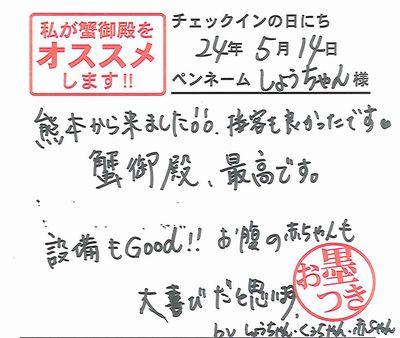 私が蟹御殿を
オススメ
します!!
チェックインの日にち
24年 5月 14日
ペンネーム しょうちゃん 様
熊本から来ました。接客も良かったです
蟹御殿、最高です。
設備もGood!! お腹の赤ちゃんも
大喜びだと思います
お墨つき
by しょうちゃん・くぅちゃん・赤ちゃん